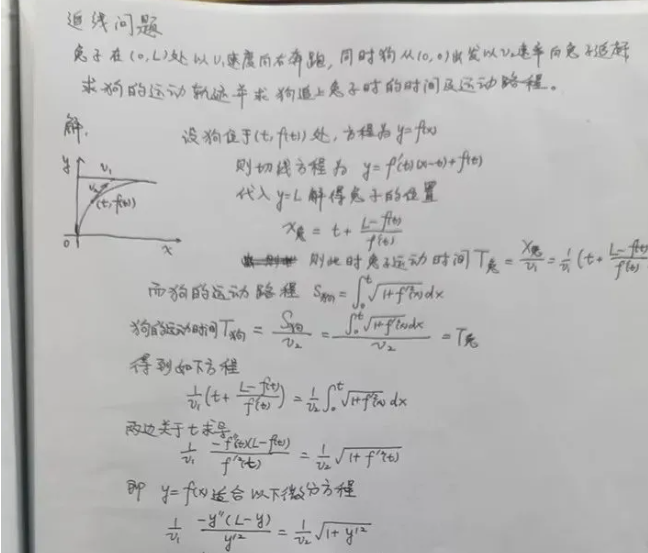 追线问题
兔子在(0,L)处以v₁速度向右奔跑,同时狗从(0,0)出发以v₂速率向兔子追赶
求狗的运动轨迹并求狗追上兔子时的时间及运动路程。
解.
设狗位于(t,f(t))处,方程为y=f(x)
则切线方程为 y=f'(t)(x-t)+f(t)
代入y=L解得兔子的位置
x兔 = t + (L-f(t))/f'(t)
则此时兔子运动时间 T兔 = x兔/v₁ = 1/v₁ (t + (L-f(t))/f'(t)
y
v₁
v₂
(t,f(t))
0
x
而狗的运动路程 S狗 = ∫₀ᵗ √(1+f'²(x)) dx
狗的运动时间T狗 = S狗/v₂ = ∫₀ᵗ √(1+f'²(x)) dx / v₂ = T兔
得到如下方程
1/v₁ (t + (L-f(t))/f'(t)) = 1/v₂ ∫₀ᵗ √(1+f'²(x)) dx
两边关于t求导
1/v₁ · -f''(t)(L-f(t))/f'²(t) = 1/v₂ √(1+f'²(t))
即 y=f(x)适合以下微分方程
1/v₁ · -y''(L-y)/y'² = 1/v₂ √(1+y'²)